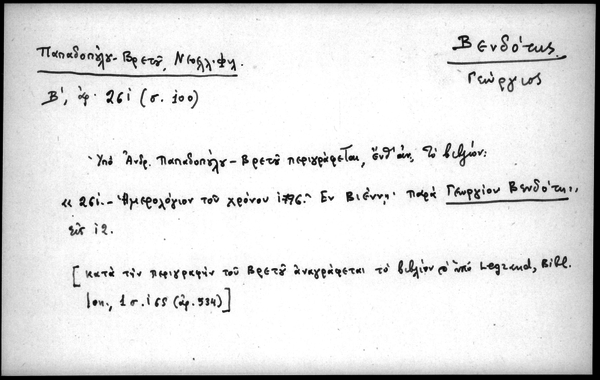 Παπαδοπούλου-Βρετοῦ, Νεοελλ. Φιλ.
Βενδότης
Γεώργιος
Β', ἀρ. 261 (σ. 100)
Ὑπὸ Ἀνδρ. Παπαδοπούλου-Βρετοῦ περιγράφεται, ἔνθ' ἀν., τὸ βιβλίον:
« 261.- Ἡμερολόγιον τοῦ χρόνου 1796. Ἐν Βιέννῃ· παρὰ Γεωργίου Βενδότη·,
εἰς 12.
[κατὰ τὴν περιγραφὴν τοῦ Βρετοῦ ἀναγράφεται τὸ βιβλίον ὑπὸ Legrand, Bibl.
Ion., 1 σ. 165 (ἀρ. 534)]